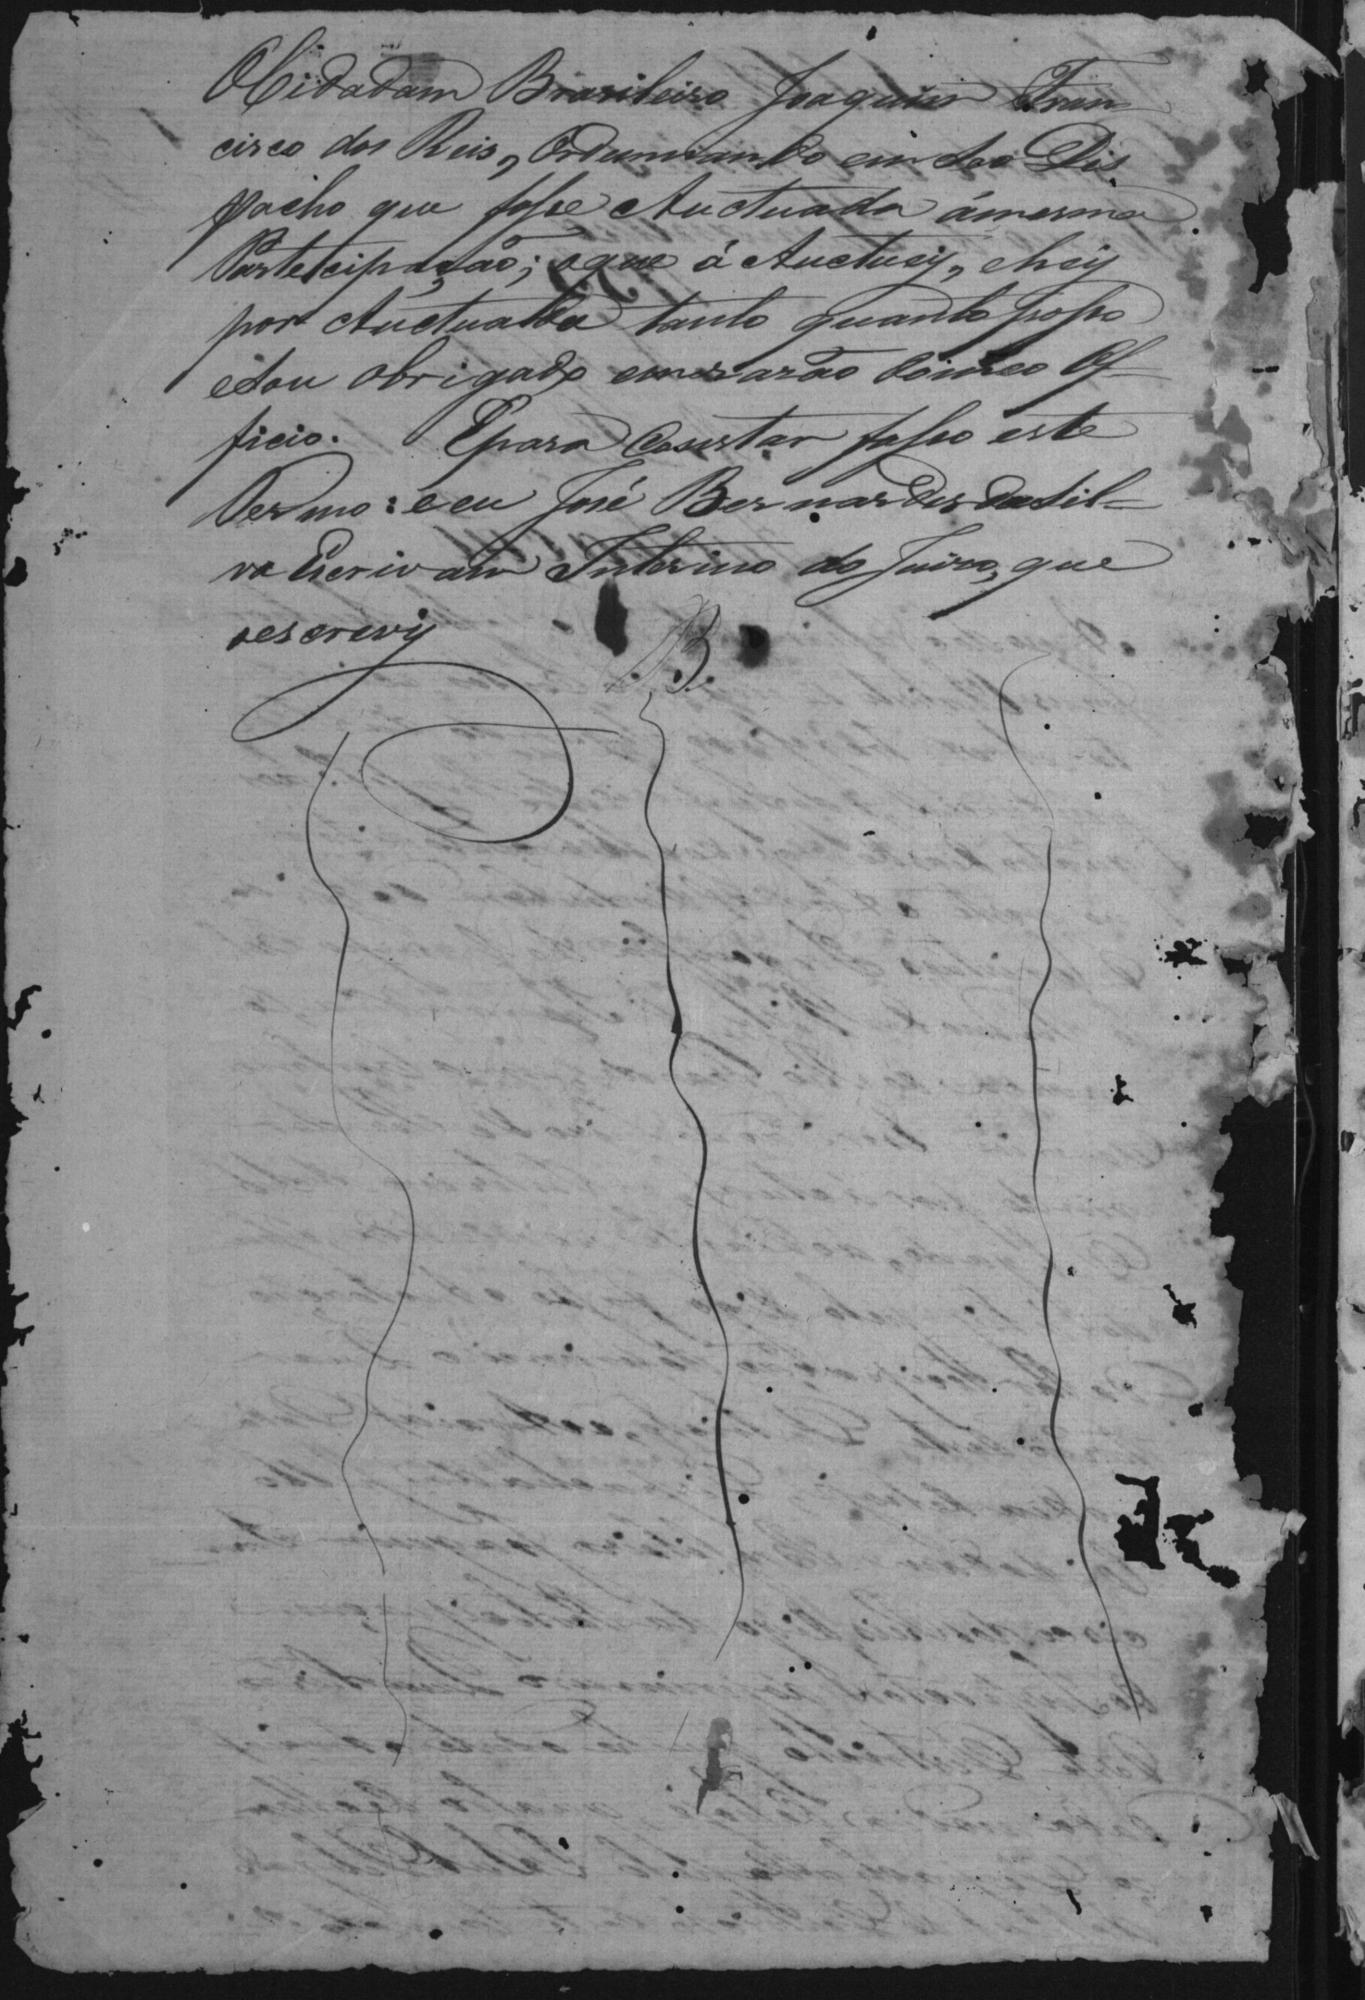 O Cidadam Brasileiro Joaquim Fran
cisco dos Reis, Ordennando em seo Dis
pacho que fosse Auctuada ámesma
Partecipação; oque á Auctuey, ehey
por Auctuada tanto quanto posso
estou obrigado emrazão domeo Of-
ficio. Epara Constar fasso este
Termo: e eu José Bernardes da Sil-
va Escrivam Interino do Juizo, que
oescrevy